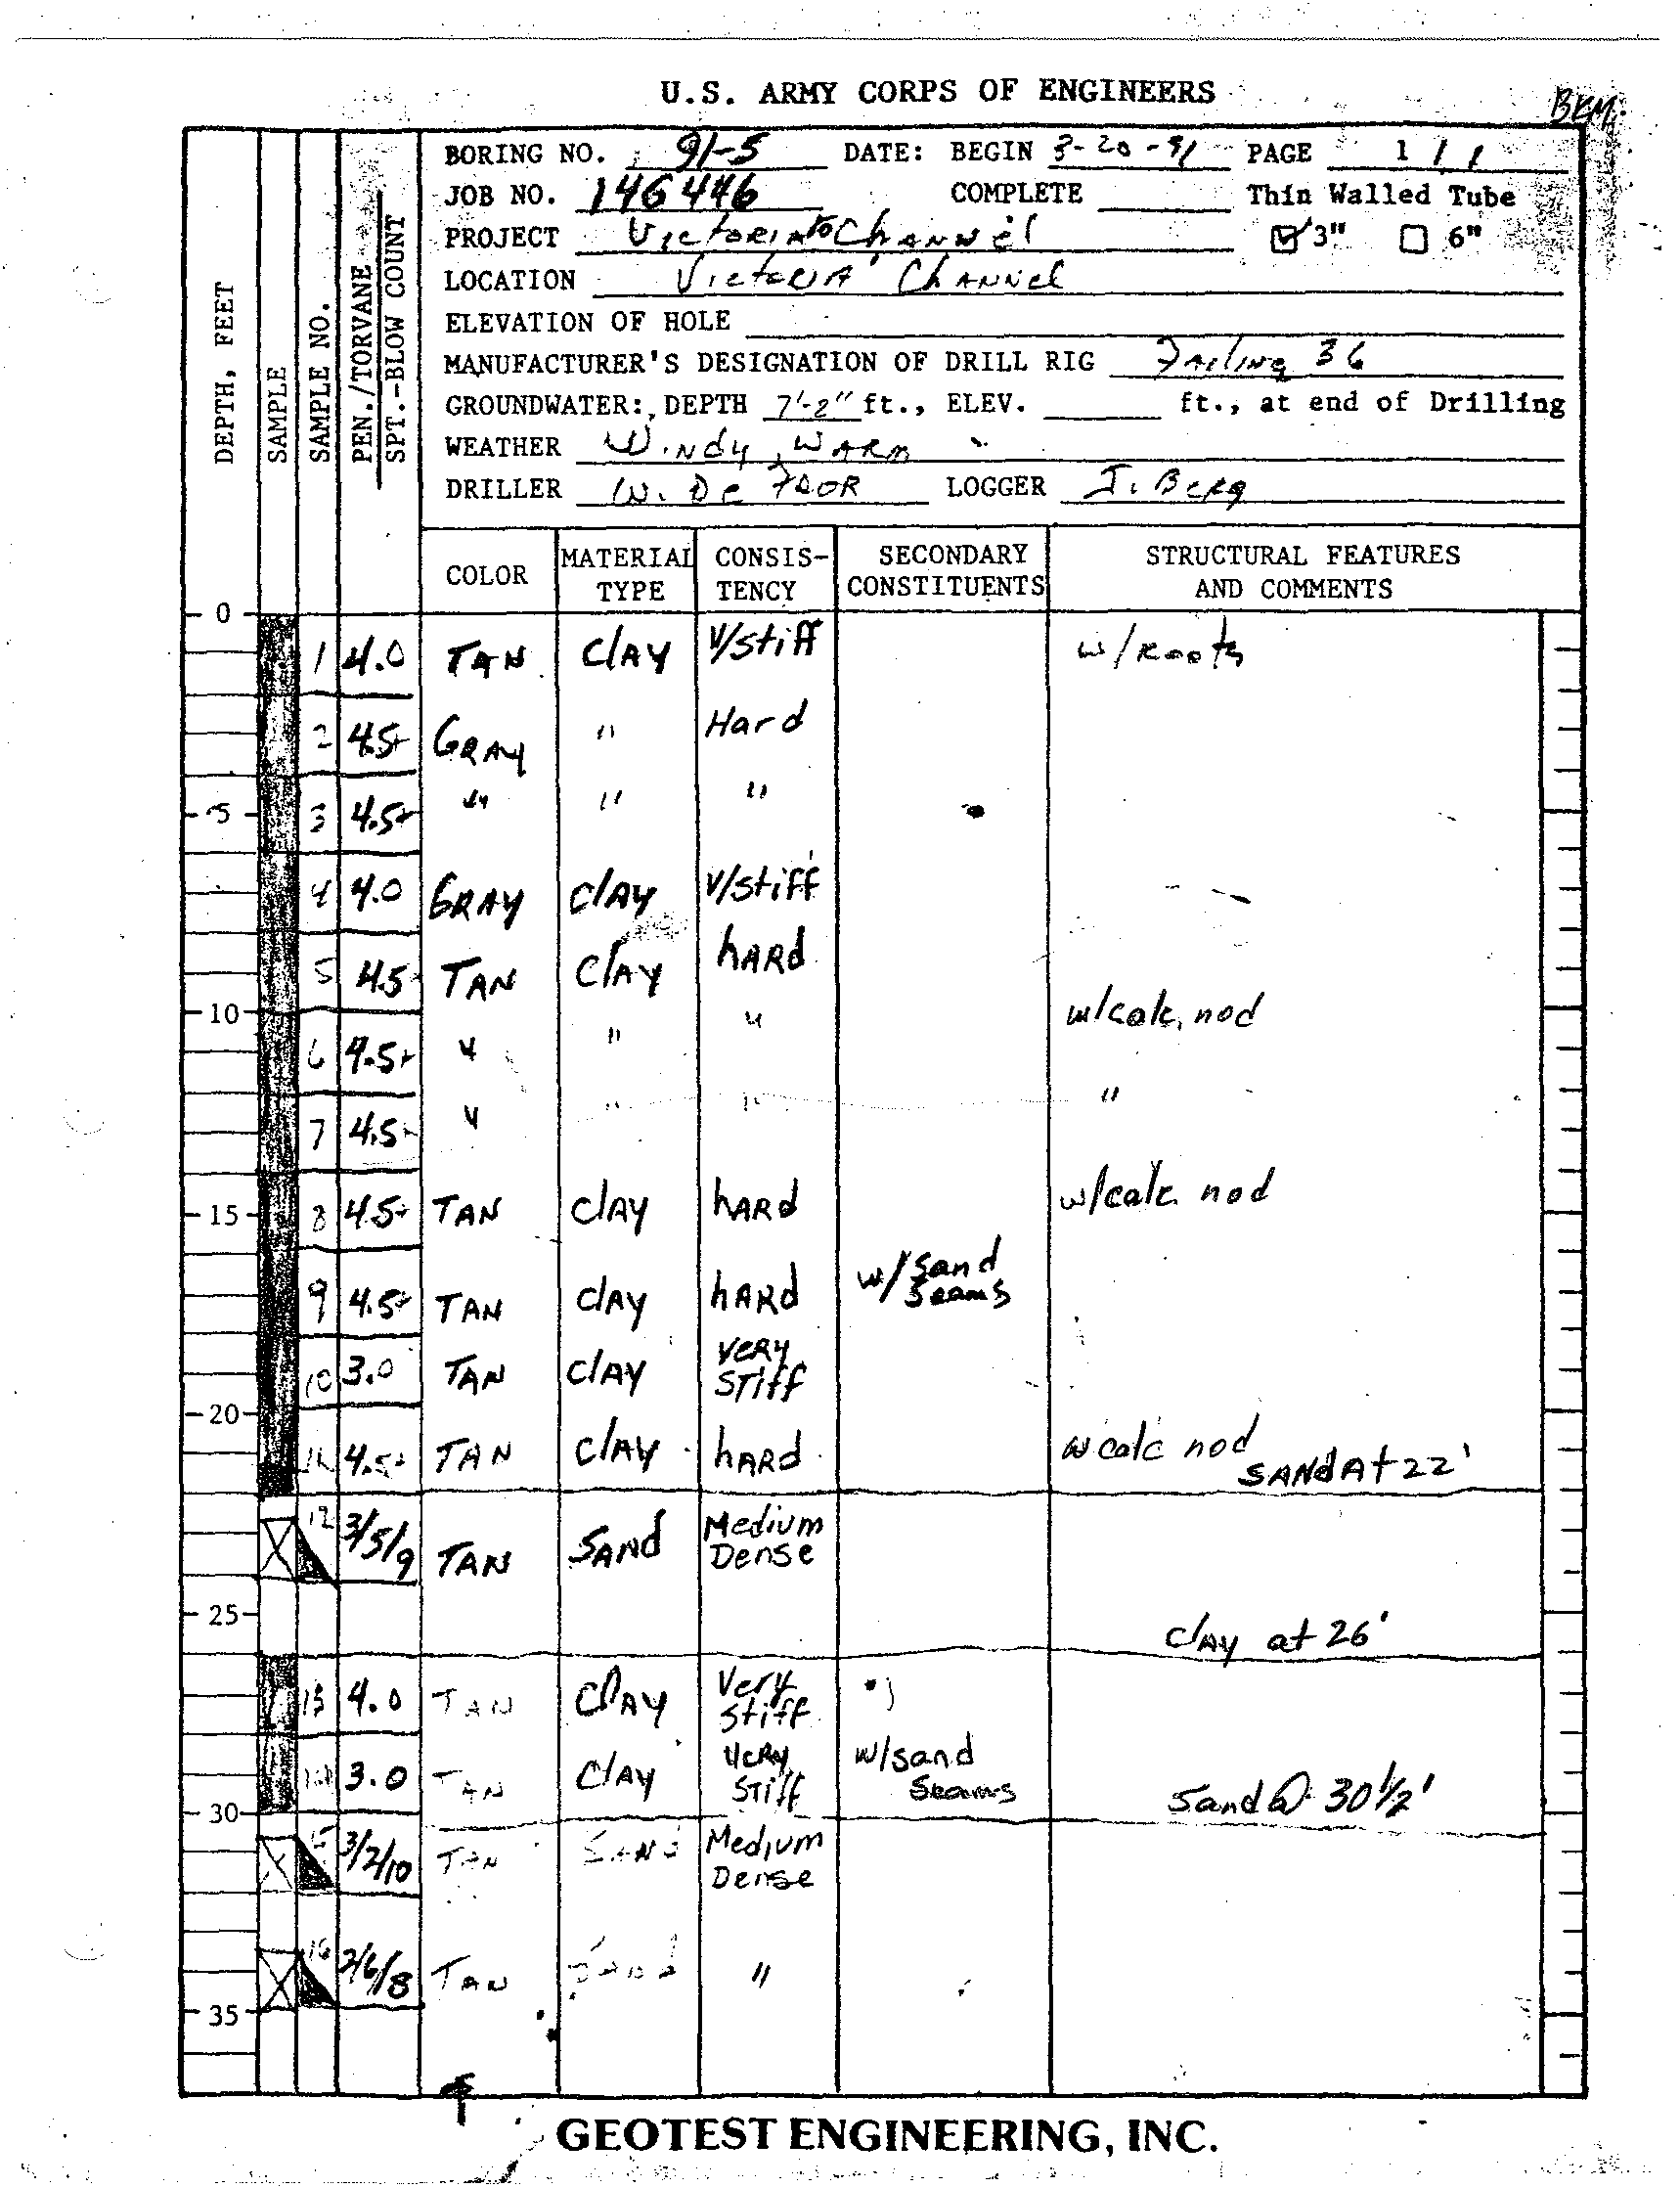 U.S. ARMY CORPS OF ENGINEERS
BKM.
BORING NO. 91-5 DATE: BEGIN 3-20-91 PAGE 1 / 1
JOB NO. 146446 COMPLETE Thin Walled Tube
PROJECT Victoria to Channel 3" 6"
LOCATION Victoria Channel
ELEVATION OF HOLE
MANUFACTURER'S DESIGNATION OF DRILL RIG Failing 36
GROUNDWATER: DEPTH 7'-2" ft., ELEV. ft., at end of Drilling
WEATHER Windy, Warm
DRILLER W. De LOGGER J. Berg
DEPTH, FEET SAMPLE SAMPLE NO. PEN./TORVANE SPT.-BLOW COUNT
COLOR MATERIAL TYPE CONSIS-TENCY SECONDARY CONSTITUENTS STRUCTURAL FEATURES AND COMMENTS
0
1 4.0 TAN CLAY V/stiff w/Roots
2 4.5+ GRAY " Hard
5 3 4.5+ " " "
4 4.0 GRAY CLAY V/stiff
5 4.5+ TAN CLAY hARd
10 w/calc. nod
6 4.5+ " " "
7 4.5+ " " " "
15 8 4.5+ TAN CLAY hARd w/calc nod
9 4.5+ TAN CLAY hARd w/sand seams
10 3.0 TAN CLAY VERY STIFF
20
11 4.5+ TAN CLAY hARd w calc nod
SANd At 22'
12 3/5/9 TAN SANd Medium Dense
25
CLAY at 26'
13 4.0 TAN CLAY Very Stiff
14 3.0 TAN CLAY VERY STIFF w/sand seams
30 Sand @ 30 1/2'
15 3/2/10 TAN SAND Medium Dense
16 2/6/8 TAN Sand "
35
GEOTEST ENGINEERING, INC.